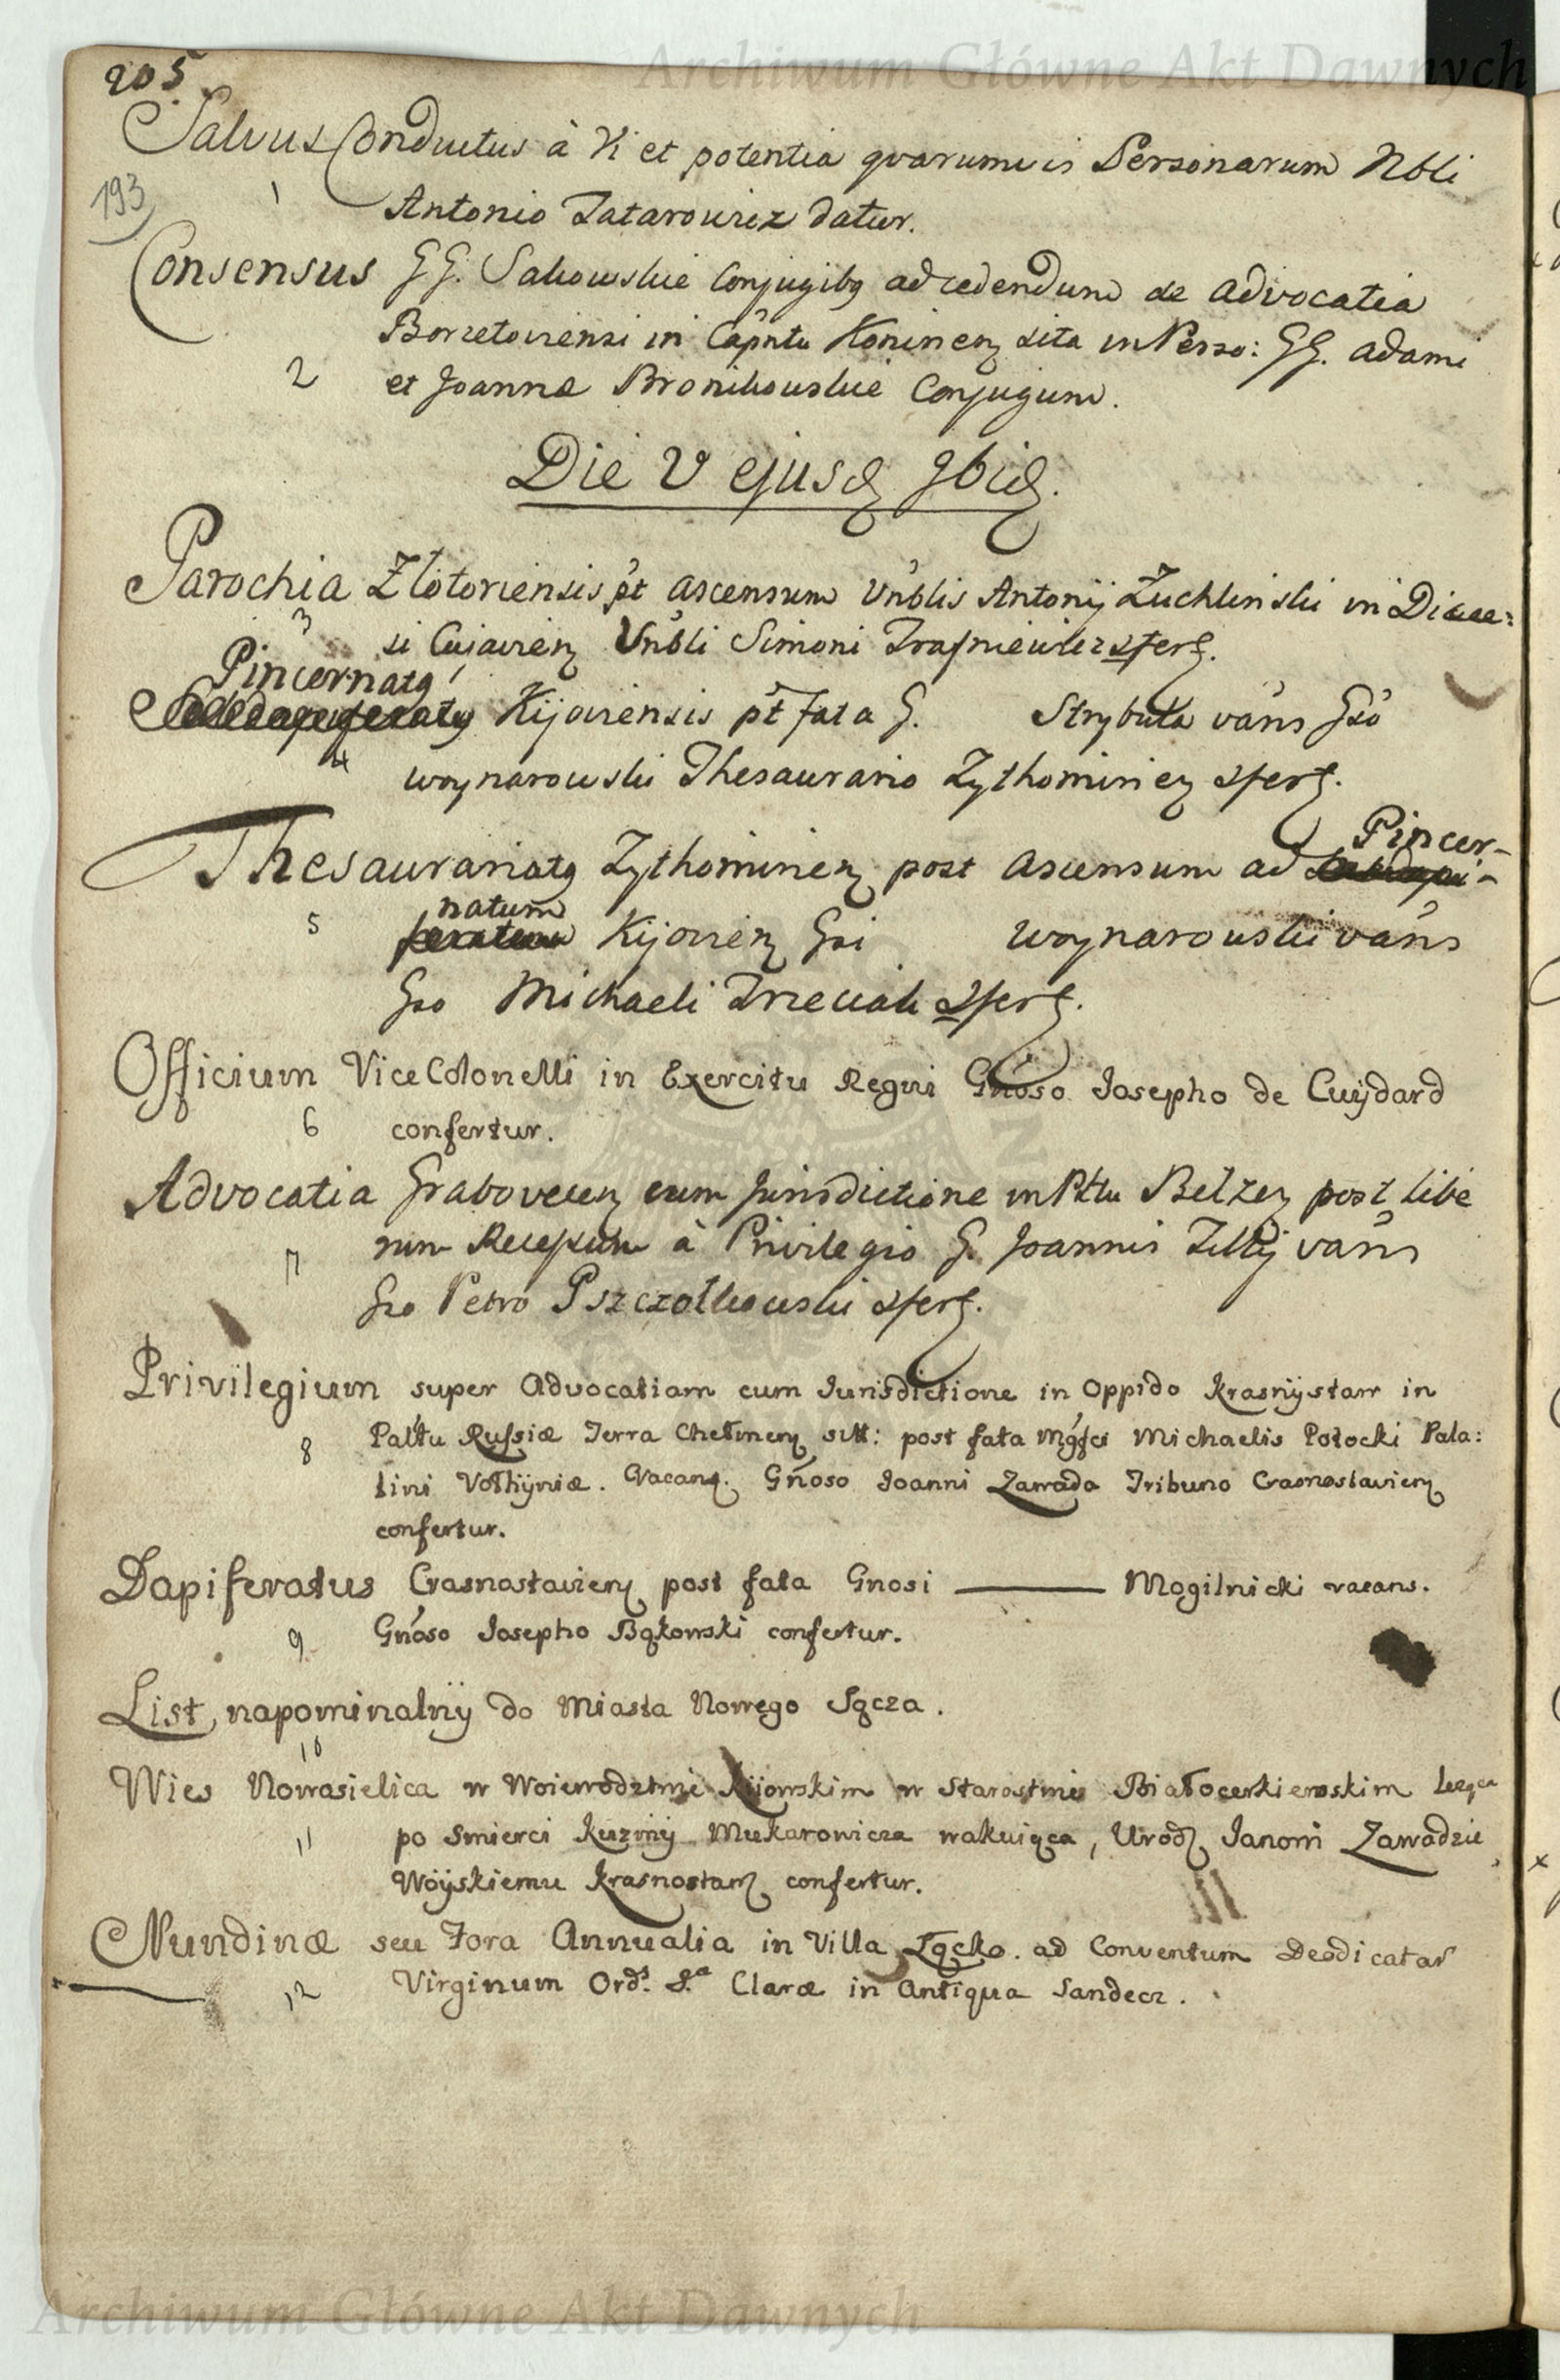 Archiwum Główne Akt Dawnych
205.
Salvus Conductus à Vi et potentia qvarumvis Personarum Nbli
193
1
Antonio Tatarowicz datur.
Consensus GG. Sakowskie Conjugibq ad cedendum de advocatia
in Capntu Koninen sita in Perso: GG. Adami
2
et Joannæ Bronikowskie Conjugum.
Die V ejusd 9bid.
Parochia Zlotoriensis pt ascensum Vnblis Antonij Zuchlinski in Diæce:
3
si Cujavien Vnbli Simoni
Pincernatq
Kijoviensis pt fata G. Strybuta vans Gso
4
Woynarowski Thesaurario Zythominien 2fert.
Pincer-
Thesaurariatq Zythominien post ascensum ad
natum
5
Kijovien Gsi Woynarowski vans
Gso Michaeli Trzeciak 2fert.
Officium ViceColonelli in Exercitu Regni Gnoso Josepho de Cuÿdard
6
confertur.
Advocatia Grabovecen cum Jurisdictione in Pltu Belzen post libe
rum Recessum à Privilegio G. Joannis Zilij vans
7
Gso Petro Pszczołkowski 2fert.
Privilegium super Advocatiam cum Jurisdictione in Oppido Krasnÿstaw in
Paltu Russiæ Terra Chełmen sitt: post fata Mgfci Michaelis Potocki Pala:
8
tini Volhÿniæ. Vacan. Gnoso Joanni Zawada Tribuno Crasnostavien
confertur.
Dapiferatus Crasnostavien post fata Gnosi ——— Mogilnicki vacans.
Gnoso Josepho Bąkowski confertur.
9
List napominalnÿ do Miasta Nowego Sącza.
10
Wies Nowasielica w Woiewodztwie Kijowskim w Starostwie Białocerkiewskim leząca
po Smierci Kuzmÿ Mukarowicza wakuiąca, Urodz Janowi Zawadzie
11
Woÿskiemu Krasnostaw confertur.
Nundinæ seu Fora Annualia in Villa Łącko. ad Conventum Deodicatar
Virginum Ord. S.a Claræ in Antiqua Sandecz.
12
Archiwum Główne Akt Dawnych